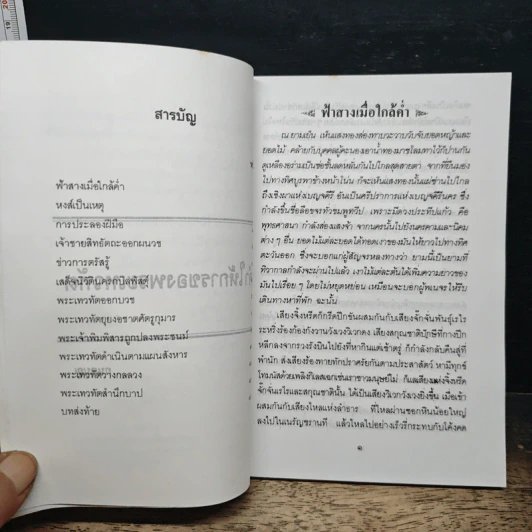 สารบัญ
ฟ้าสางเมื่อใกล้ค่ำ
หงส์เป็นเหตุ
การประลองฝีมือ
เจ้าชายสิทธัตถะออกผนวช
ข่าวการตรัสรู้
เสด็จนิวัตินครกบิลพัสดุ์
พระเทวทัตออกบวช
พระเทวทัตยุยงอชาตศัตรูกุมาร
พระเจ้าพิมพิสารถูกปลงพระชนม์
พระเทวทัตดำเนินตามแผนสังหาร
พระเทวทัตวางกลลวง
พระเทวทัตสำนึกบาป
บทส่งท้าย
ฟ้าสางเมื่อใกล้ค่ำ
ณ ยามเย็น เห็นแสงทองส่องทาบระวาบวับจับยอดหญ้าและ
ยอดไม้ คล้ายกับบุคคลผู้คะนองเอาน้ำทองมาชโลมทาไว้ก็ปานกัน
ดูเหลืองอร่ามเป็นช่อชั้นลดหลั่นกันไปไกลสุดสายตา จากที่ยืนมอง
ไปทางทิศบูรพาข้างหน้าโน่น ก็จะเห็นแสงทองนั้นแผ่ซ่านไปไกล
ถึงเชิงผาแห่งเบญจคีรี อันเป็นศรีปราการแห่งเบญจคีรีนคร ซึ่ง
กำลังชื่นชื่อลือขจรทั่วชมพูทวีป เพราะมีดวงประทีปแก้ว คือ
พุทธศาสนา กำลังส่องแสงจ้า จากนครนั้นไปยังนครและคามนิคม
ต่าง ๆ อื่น ยอดไม้แต่ละยอดได้ทอดเงาของมันให้ยาวไปทางทิศ
ตะวันออก ซึ่งจะบอกแก่ผู้สัญจรหลงทางว่า ยามนี้เป็นยามที่
ทิวากาลกำลังจะผ่านไปแล้ว เงาไม้แต่ละต้นได้เพิ่มความยาวของ
มันไปเรื่อย ๆ โดยไม่หยุดหย่อน เหมือนจะบอกผู้พเนจรให้รีบ
เดินทางหาที่พัก ฉะนั้น
เสียงจิ้งหรีดก็กรีดปีกขันผสมกันกับเสียงจั๊กจั่นพันธุ์เรไร
ระหริ่งร้องก้องกังวานวังเวงวิเวกดง เสียงสกุณชาติปักษีที่กางปีก
หลีกลงจากรวงรังบินไปยังที่หากินแต่เช้าตรู่ ก็กำลังกลับคืนสู่ที่
พำนัก ส่งเสียงร้องทายทักปราศรัยกันตามประสาสัตว์